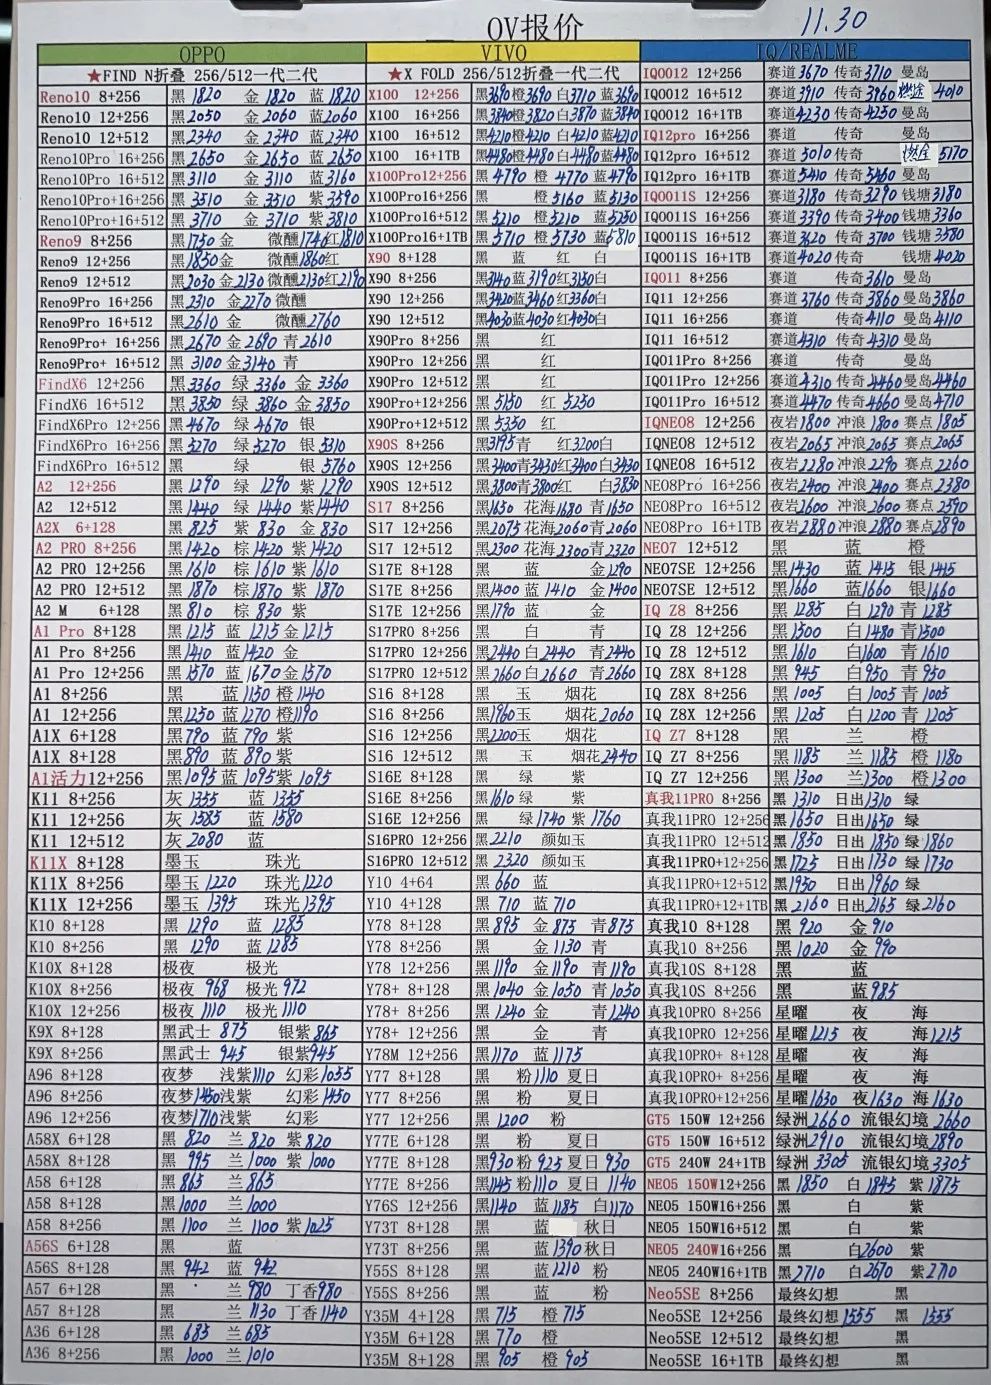 OV报价
11.30
OPPO
★FIND N折叠 256/512一代二代
Reno10 8+256 黑1820 金1820 蓝1820
Reno10 12+256 黑2050 金2060 蓝2060
Reno10 12+512 黑2340 金2340 蓝2340
Reno10Pro 16+256 黑2650 金2650 蓝2650
Reno10Pro 16+512 黑3110 金3110 蓝3160
Reno10Pro+16+256 黑3510 金3510 紫3590
Reno10Pro+16+512 黑3710 金3710 紫3810
Reno9 8+256 黑1750 金 微醺1740 红1810
Reno9 12+256 黑1850 金 微醺1860 红
Reno9 12+512 黑2030 金2130 微醺2130 红2190
Reno9Pro 16+256 黑2310 金2270 微醺
Reno9Pro 16+512 黑2610 金 微醺2760
Reno9Pro+ 16+256 黑2670 金2690 青2610
Reno9Pro+ 16+512 黑3100 金3140 青
FindX6 12+256 黑3360 绿3360 金3360
FindX6 16+512 黑3850 绿3860 金3850
FindX6Pro 12+256 黑4670 绿4670 银
FindX6Pro 16+256 黑5270 绿5270 银5310
FindX6Pro 16+512 黑 绿 银5760
A2 12+256 黑1290 绿1290 紫1290
A2 12+512 黑1440 绿1440 紫1440
A2X 6+128 黑825 紫830 金830
A2 PRO 8+256 黑1420 棕1420 紫1420
A2 PRO 12+256 黑1610 棕1610 紫1610
A2 PRO 12+512 黑1870 棕1870 紫1870
A2 M 6+128 黑810 棕830 紫
A1 Pro 8+128 黑1215 蓝1215 金1215
A1 Pro 8+256 黑1410 蓝1420 金
A1 Pro 12+256 黑1570 蓝1670 金1570
A1 8+256 黑 蓝1150 橙1140
A1 12+256 黑1250 蓝1270 橙1190
A1X 6+128 黑790 蓝790 紫
A1X 8+256 黑890 蓝890 紫
A1活力12+256 黑1095 蓝1095 紫1095
K11 8+256 灰1355 蓝1355
K11 12+256 灰1585 蓝1580
K11 12+512 灰2080 蓝
K11X 8+128 墨玉 珠光
K11X 8+256 墨玉1220 珠光1220
K11X 12+256 墨玉1395 珠光1395
K10 8+128 黑1290 蓝1285
K10 8+256 黑1290 蓝1285
K10X 8+128 极夜 极光
K10X 8+256 极夜968 极光972
K10X 12+256 极夜1110 极光1110
K9X 8+128 黑武士875 银紫865
K9X 8+256 黑武士945 银紫945
A96 8+128 夜梦 浅紫1110 幻彩1055
A96 8+256 夜梦1450 浅紫 幻彩1450
A96 12+256 夜梦1710 浅紫 幻彩
A58X 6+128 黑820 兰820 紫820
A58X 8+256 黑995 兰1000 紫1000
A58 6+128 黑865 兰865
A58 8+128 黑1000 兰1000
A58 8+256 黑1100 兰1100 紫1025
A56S 6+128 黑 蓝
A56S 8+128 黑942 蓝942
A57 8+128 黑 兰980 丁香980
A57 8+128 黑 兰1130 丁香1140
A36 6+128 黑685 兰685
A36 8+256 黑1000 兰1010
VIVO
★X FOLD 256/512折叠一代二代
X100 12+256 黑3690 橙3690 白3710 蓝3690
X100 16+256 黑3840 橙3820 白3870 蓝3840
X100 16+512 黑4210 橙4210 白4210 蓝4210
X100 16+1TB 黑4480 橙4480 白4480 蓝4480
X100Pro12+256 黑4790 橙4770 蓝4790
X100Pro16+256 黑 橙5160 蓝5130
X100Pro16+512 黑5210 橙5210 蓝5250
X100Pro16+1TB 黑5710 橙5730 蓝5810
X90 8+128 黑 蓝 红 白
X90 8+256 黑3140 蓝3190 红3150 白
X90 12+256 黑3420 蓝3460 红3360 白
X90 12+512 黑4030 蓝4030 红4030 白
X90Pro 8+256 黑 红
X90Pro 12+256 黑 红
X90Pro 12+512 黑 红
X90Pro+12+256 黑5150 红5250
X90Pro+12+512 黑5350 红
X90S 8+256 黑3195 青 红3200 白
X90S 12+256 黑3400 青3430 红3400 白3430
X90S 12+512 黑3800 青3800 红 白3830
S17 8+256 黑1650 花海1680 青1650
S17 12+256 黑2075 花海2060 青2060
S17 12+512 黑2300 花海2300 青2320
S17E 8+128 黑 蓝 金1290
S17E 8+256 黑1400 蓝1410 金1400
S17E 12+256 黑1790 蓝 金
S17PRO 8+256 黑 白 青
S17PRO 12+256 黑2440 白2440 青2440
S17PRO 12+512 黑2660 白2660 青2660
S16 8+128 黑 玉 烟花
S16 8+256 黑1960 玉 烟花2060
S16 12+256 黑2200 玉
S16 12+512 黑 玉 烟花2440
S16E 8+128 黑 绿 紫
S16E 8+256 黑1610 绿 紫
S16E 12+256 黑 绿1740 紫1760
S16PRO 12+256 黑2210 颜如玉
S16PRO 12+512 黑2320 颜如玉
Y10 4+64 黑660 蓝
Y10 4+128 黑710 蓝710
Y78 8+128 黑895 金875 青875
Y78 8+256 黑 金1130 青
Y78 12+256 黑1190 金1190 青1190
Y78+ 8+128 黑1040 金1050 青1050
Y78+ 8+256 黑1240 金 青1240
Y78+ 12+256 黑 金 青
Y78M 12+256 黑1170 蓝1175
Y77 8+128 黑 粉1110 夏日
Y77 8+256 黑 粉 夏日
Y77 12+256 黑1200 粉
Y77E 6+128 黑 粉 夏日
Y77E 8+128 黑930 粉925 夏日930
Y77E 8+256 黑1145 粉1110 夏日1140
Y76S 12+256 黑1140 蓝1185 白1170
Y73T 8+128 黑 蓝 秋日
Y73T 8+256 黑 蓝1390 秋日
Y55S 8+128 黑 蓝1210 粉
Y55S 8+256 黑 蓝 粉
Y35M 4+128 黑715 橙715
Y35M 6+128 黑770 橙
Y35M 8+128 黑905 橙905
IQ/REALME
IQ0012 12+256 赛道3670 传奇3710 曼岛
IQ0012 16+512 赛道3910 传奇3960 燃途4010
IQ0012 16+1TB 赛道4230 传奇4250 曼岛
IQ12pro 16+256 赛道 传奇 曼岛
IQ12pro 16+512 赛道5010 传奇 燃途5170
IQ12pro 16+1TB 赛道5410 传奇5460 曼岛
IQ0011S 12+256 赛道3180 传奇3290 钱塘3180
IQ0011S 16+256 赛道3390 传奇3400 钱塘3360
IQ0011S 16+512 赛道3620 传奇3700 钱塘3580
IQ0011S 16+1TB 赛道4020 传奇 钱塘4020
IQ011 8+256 赛道 传奇3610 曼岛
IQ11 12+256 赛道3760 传奇3860 曼岛3860
IQ11 16+256 赛道 传奇4110 曼岛4110
IQ11 16+512 赛道4310 传奇4310 曼岛
IQ011Pro 8+256 赛道 传奇 曼岛
IQ011Pro 12+256 赛道4310 传奇4460 曼岛4460
IQ011Pro 16+512 赛道4470 传奇4660 曼岛4710
IQNEO8 12+256 夜岩1800 冲浪1800 赛点1805
IQNEO8 12+512 夜岩2065 冲浪2065 赛点2065
IQNEO8 16+512 夜岩2280 冲浪2290 赛点2260
NEO8Pro 16+256 夜岩2400 冲浪2400 赛点2380
NEO8Pro 16+512 夜岩2600 冲浪2600 赛点2590
NEO8Pro 16+1TB 夜岩2880 冲浪2880 赛点2890
NEO7 12+512 黑 蓝 橙
NEO7SE 12+256 黑1430 蓝1415 银1415
NEO7SE 12+512 黑1660 蓝1660 银1660
IQ Z8 8+256 黑1285 白1290 青1285
IQ Z8 12+256 黑1500 白1480 青1500
IQ Z8 12+512 黑1610 白1600 青1610
IQ Z8X 8+128 黑945 白950 青950
IQ Z8X 8+256 黑1005 白1005 青1005
IQ Z8X 12+256 黑1205 白1200 青1205
IQ Z7 8+128 黑 兰 橙
IQ Z7 8+256 黑1185 兰1185 橙1180
IQ Z7 12+256 黑1300 兰1300 橙1300
真我11PRO 8+256 黑1310 日出1310 绿
真我11PRO 12+256 黑1650 日出1650 绿
真我11PRO 12+512 黑1850 日出1850 绿1860
真我11PRO+12+256 黑1725 日出1730 绿1730
真我11PRO+12+512 黑1950 日出1960 绿
真我11PRO+12+1TB 黑2160 日出2165 绿2160
真我10 8+128 黑920 金910
真我10 8+256 黑1020 金990
真我10S 8+128 黑 蓝
真我10S 8+256 黑 蓝985
真我10PRO 8+256 星曜 夜 海
真我10PRO 12+256 星曜1215 夜 海1215
真我10PRO+ 8+128 星曜 夜 海
真我10PRO+ 8+256 星曜 夜 海
真我10PRO+12+256 星曜1630 夜1630 海1630
GT5 150W 12+256 绿洲2660 流银幻境2660
GT5 150W 16+512 绿洲2910 流银幻境2890
GT5 240W 24+1TB 绿洲3305 流银幻境3305
NEO5 150W12+256 黑1850 白1845 紫1875
NEO5 150W16+256 黑 白 紫
NEO5 150W16+512 黑 白 紫
NEO5 240W16+256 黑 白2600 紫
NEO5 240W16+1TB 黑2710 白2670 紫2710
Neo5SE 8+256 最终幻想 黑
Neo5SE 12+256 最终幻想1555 黑1555
Neo5SE 12+512 最终幻想 黑
Neo5SE 16+1TB 最终幻想 黑